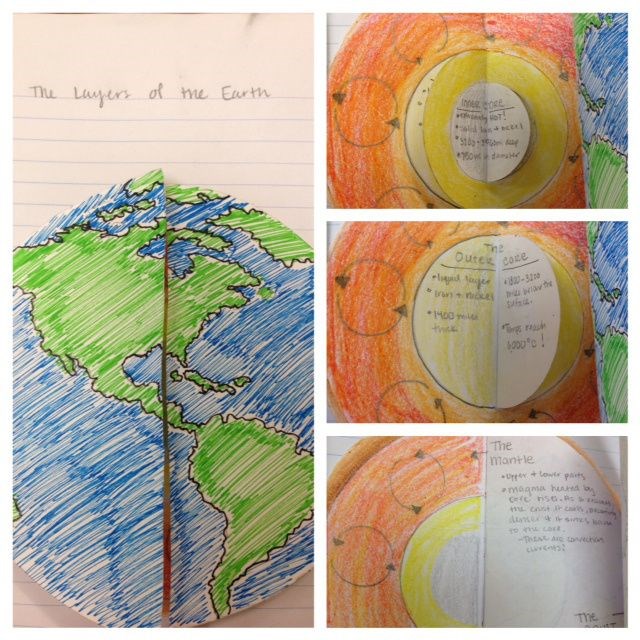 The Layers of the Earth
INNER CORE
• extremely HOT!
• solid iron + nickel
• 3200 - 3960mi deep
• 780mi in diameter
The
Outer core
• liquid layer
• Iron + nickel
• 1400 miles
thick
• 1800 - 3200
miles below the
surface.
• Temps reach
6000°C!
The
Mantle
• Upper + lower parts
• Magma heated by
core rises. As it
the crust it cools, becoming
denser + it sinks back
to the core.
- These are convection
currents!
The